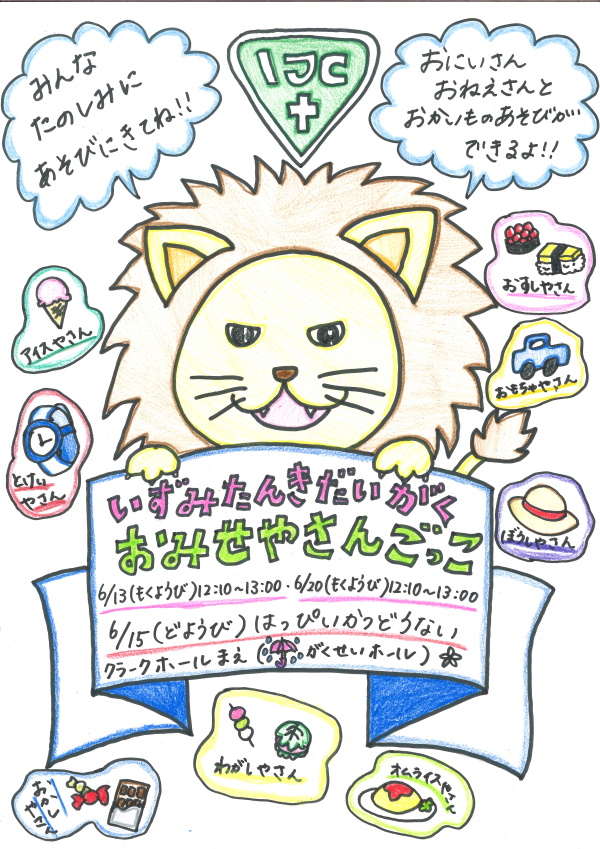 みんな
たのしみに
あそびにきてね!!
IJC
おにいさん
おねえさんと
おかいものあそびが
できるよ!!
アイスやさん
おすしやさん
おもちゃやさん
とけい
やさん
ぼうしやさん
いずみたんきだいがく
おみせやさんごっこ
6/13(もくようび)12:10~13:00・6/20(もくようび)12:10~13:00
6/15(どようび)はっぴいかつどうない
クラークホールまえ(がくせいホール)
わがしやさん
おかし
やさん
オムライスやさん